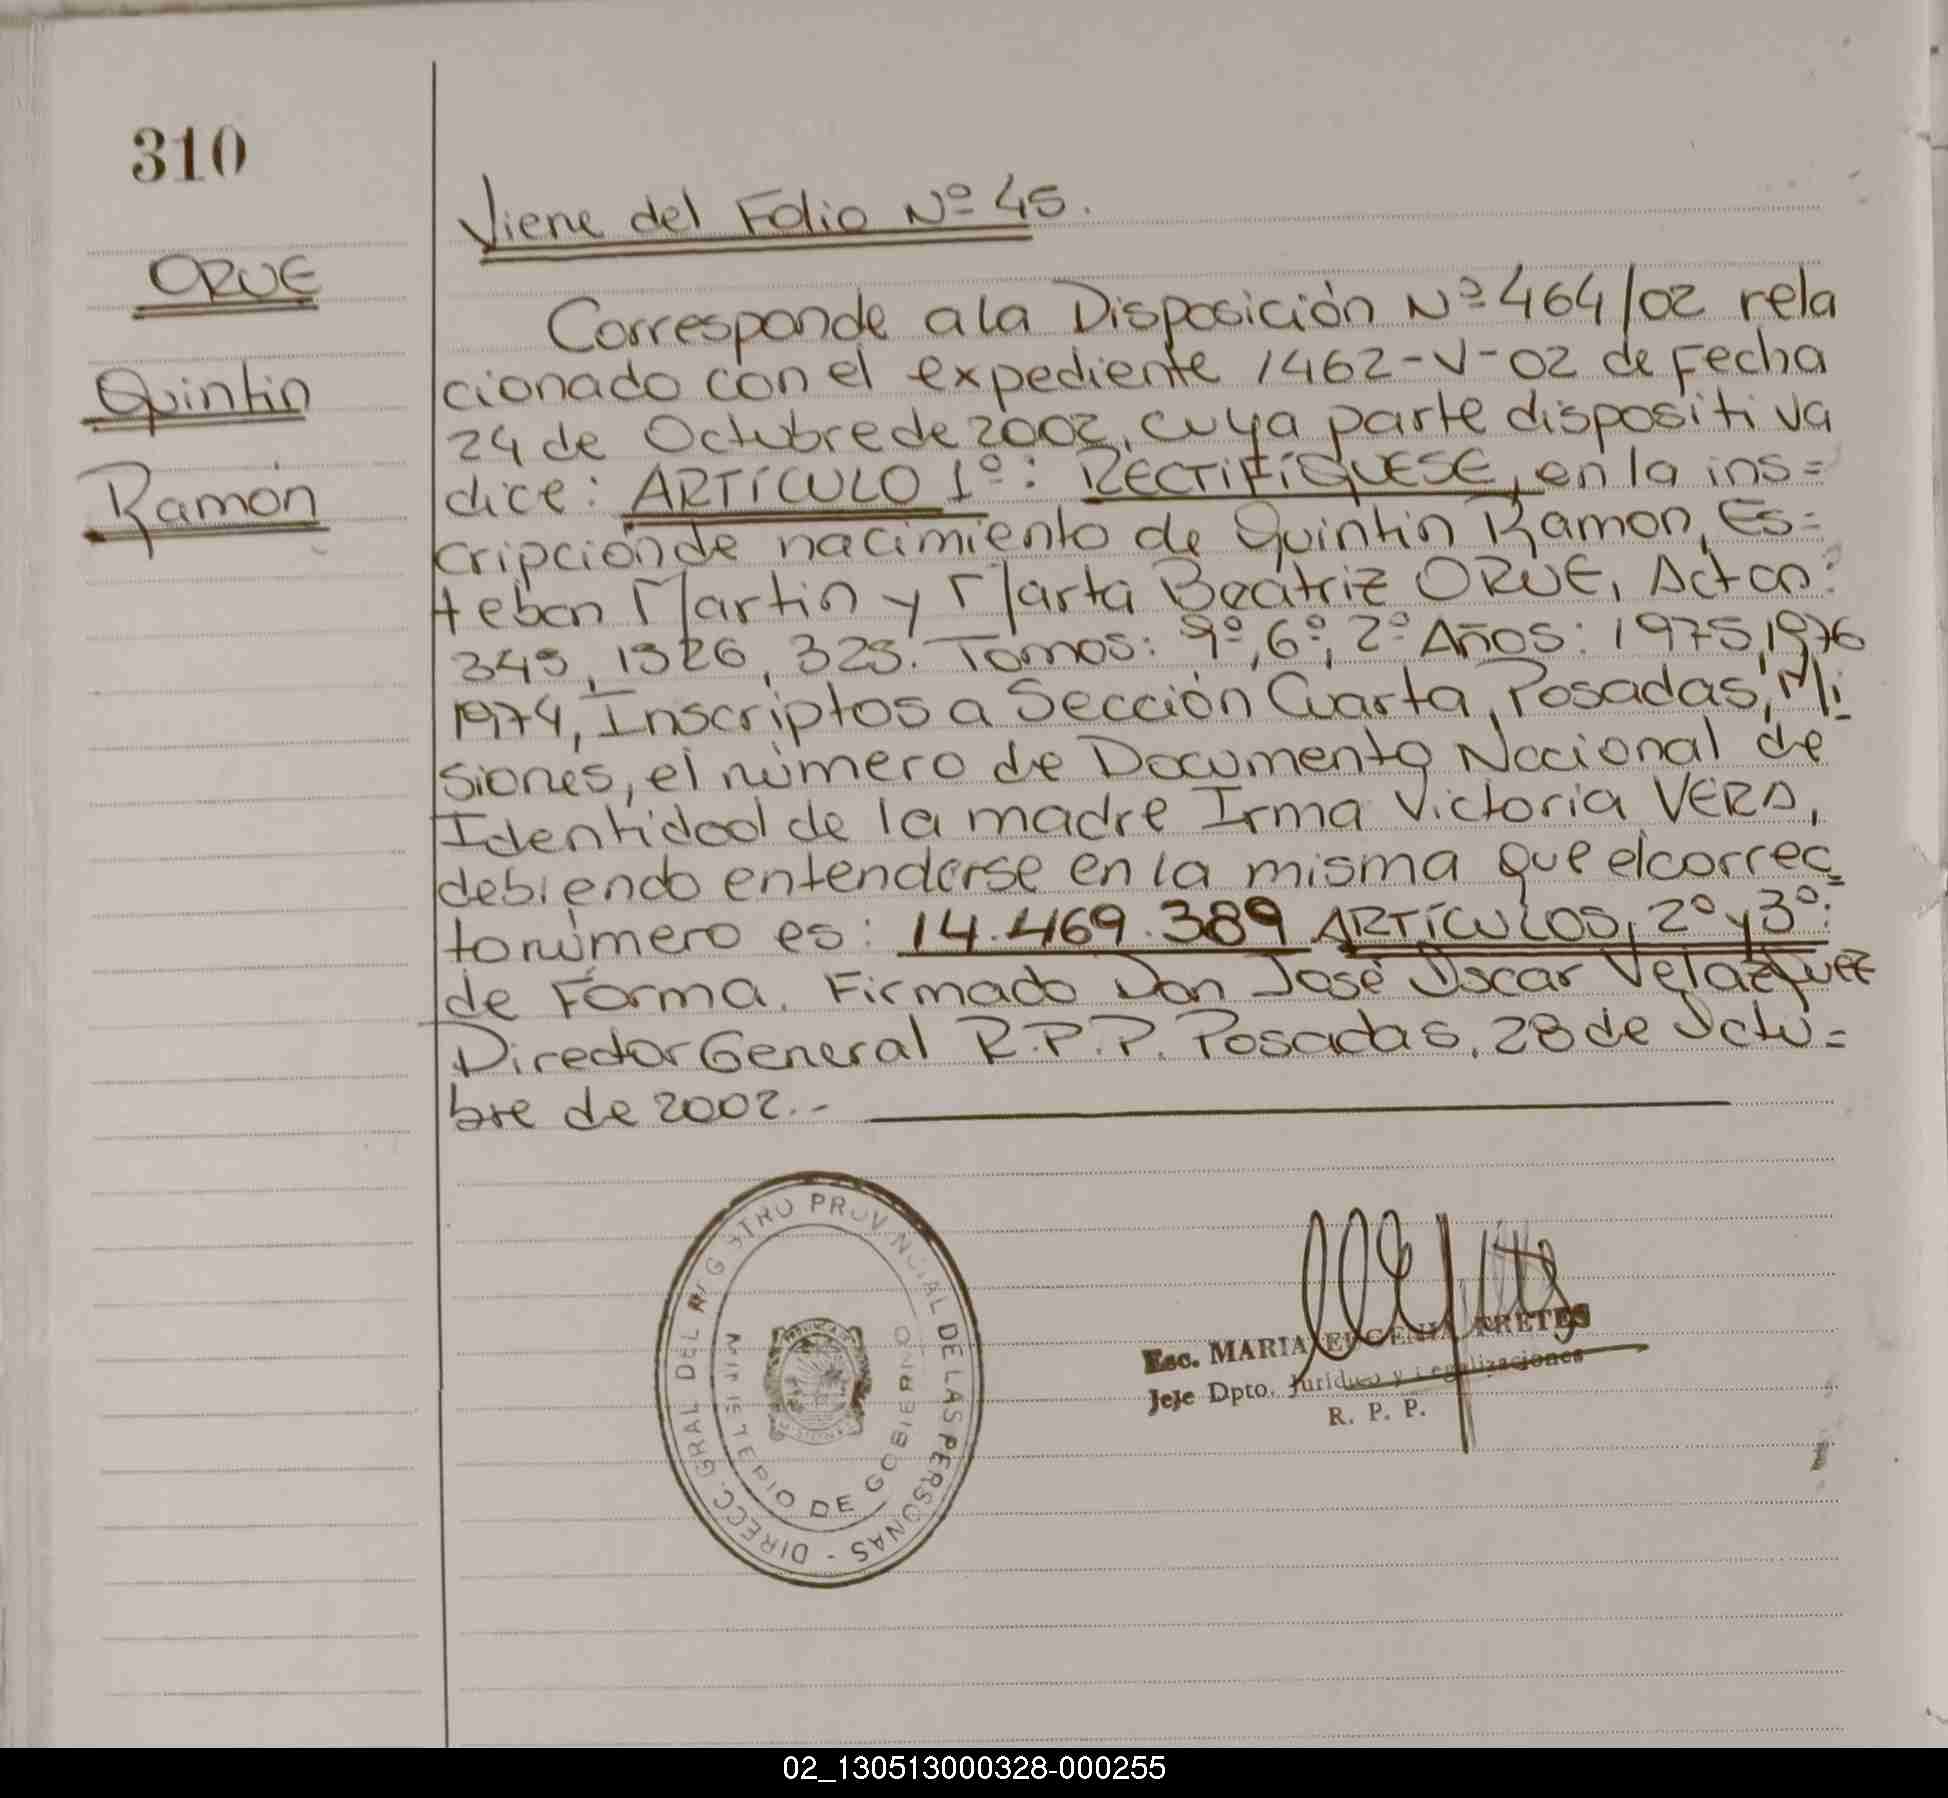 310
ORUE
Quintin
Ramón
Viene del Folio Nº 45.
Corresponde a la Disposición Nº 464/02 rela
cionado con el expediente 1462-V-02 de Fecha
24 de Octubre de 2002, cuya parte dispositiva
dice: ARTÍCULO 1º: RECTIFÍQUESE, en la ins=
cripción de nacimiento de Quintin Ramon, Es=
teban Martin y Marta Beatriz ORUE, Actas:
345, 1326, 323. Tomos: 9º, 6º, 2º Años: 1975, 1976
1974, Inscriptos a Sección Cuarta, Posadas, Mi
siones, el número de Documento Nacional de
Identidad de la madre Irma Victoria VERA,
debiendo entenderse en la misma que el correc
to número es: 14.469.389 ARTÍCULOS, 2º y 3º:
de Forma. Firmado Don José Oscar Velazquez
Director General R.P.P. Posadas, 28 de Octu=
bre de 2002.-
DIRECC. GRAL DEL REGISTRO PROVINCIAL DE LAS PERSONAS -
MINISTERIO DE GOBIERNO
Esc. MARIA EUGENIA FRETES
Jefe Dpto. Jurídico y Legalizaciones
R. P. P.
02_130513000328-000255